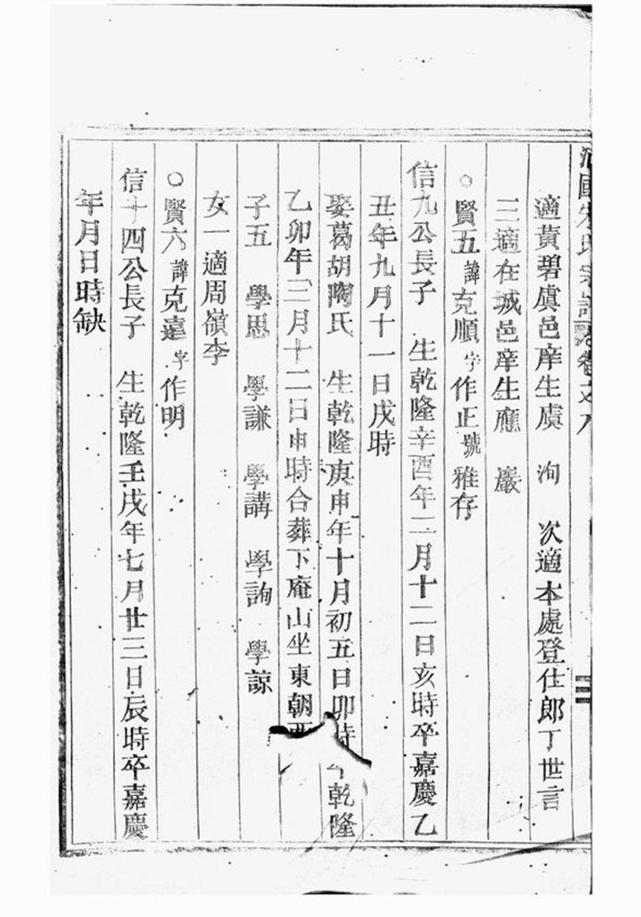 氏宗譜卷之八
適黃碧虞邑庠生虞 洵 次適本處登仕郎丁世言
三適在城邑庠生應 嚴
○賢五諱克順字作正號雅存
信九公長子 生乾隆辛酉年二月十二日亥時卒嘉慶乙
丑年九月十一日戌時
娶葛胡陶氏 生乾隆庚申年十月初五日卯時卒乾隆
乙卯年三月十二日申時合葬下庵山坐東朝西
子五 學思 學謙 學講 學詢 學諒
女一適周嶺李
○賢六諱克遠字作明
信十四公長子 生乾隆壬戌年七月廿三日辰時卒嘉慶
年月日時缺